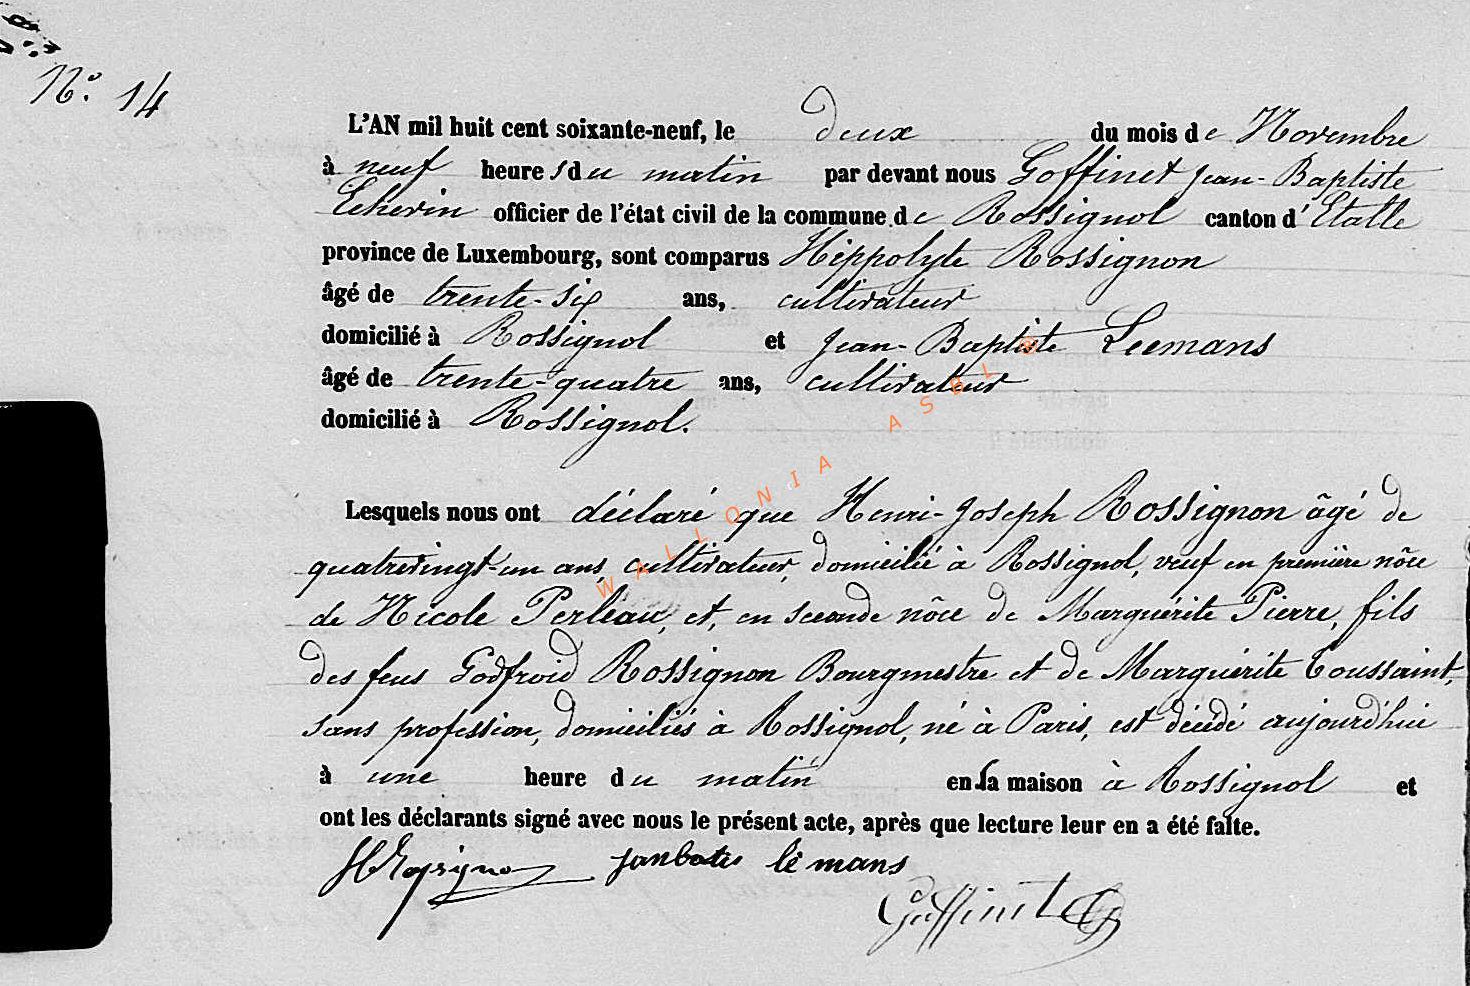 N.o 14
L'AN mil huit cent soixante-neuf, le deux du mois de Novembre
à neuf heures du matin par devant nous Goffinet Jean-Baptiste
Echevin officier de l'état civil de la commune de Rossignol canton d'Etalle
province de Luxembourg, sont comparus Hippolyte Rossignon
âgé de trente-six ans, cultivateur
domicilié à Rossignol et Jean-Baptiste Leemans
âgé de trente-quatre ans, cultivateur
domicilié à Rossignol.
WALLONIA ASBL ®
Lesquels nous ont déclaré que Henri-Joseph Rossignon âgé de
quatrevingt-un ans, cultivateur, domicilié à Rossignol, veuf en première nôce
de Nicole Perleau, et, en seconde nôce de Marguérite Pierre, fils
des feus Godfroid Rossignon Bourgmestre et de Marguérite Toussaint,
sans profession, domiciliés à Rossignol, né à Paris, est décédé aujourd'hui
à une heure du matin en sa maison à Rossignol et
ont les déclarants signé avec nous le présent acte, après que lecture leur en a été faite.
lemans
Goffinet